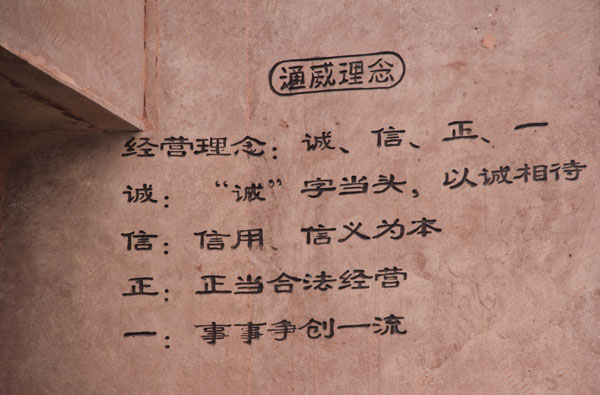 通威理念
经营理念：诚、信、正、一
诚：“诚”字当头，以诚相待
信：信用、信义为本
正：正当合法经营
一：事事争创一流